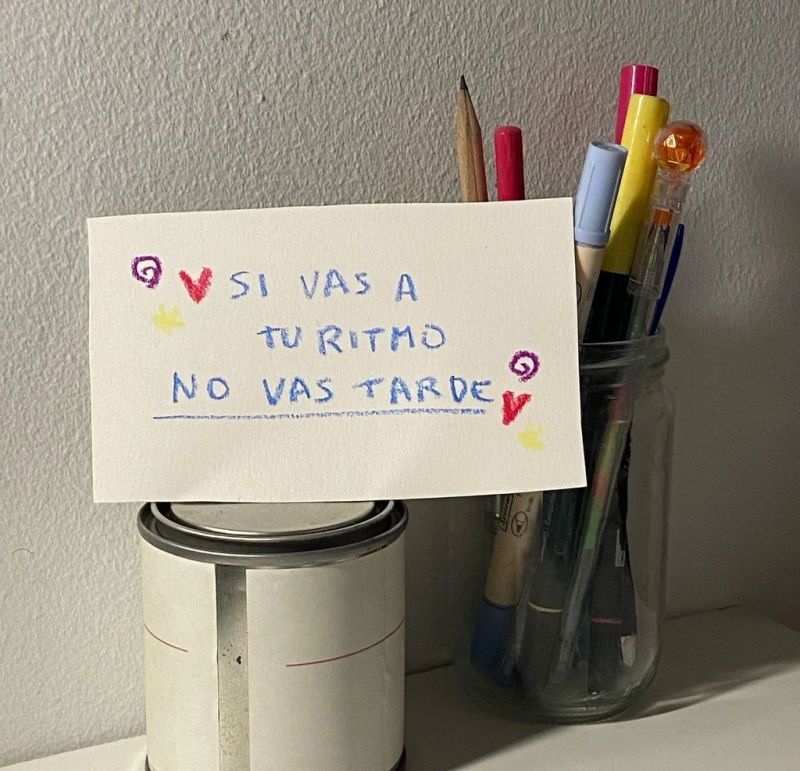 SI VAS A
TU RITMO
NO VAS TARDE